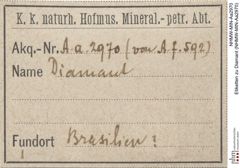 K. k. naturh. Hofmus. Mineral.- petr. Abt.
Akq.-Nr. A.a.2970 (von A.f.592)
Name Diamant
Fundort Brasilien?
NHMW-MIN-Aa2970
Etiketten zu Diamant (NHMW-MIN-Aa2970)
nhm